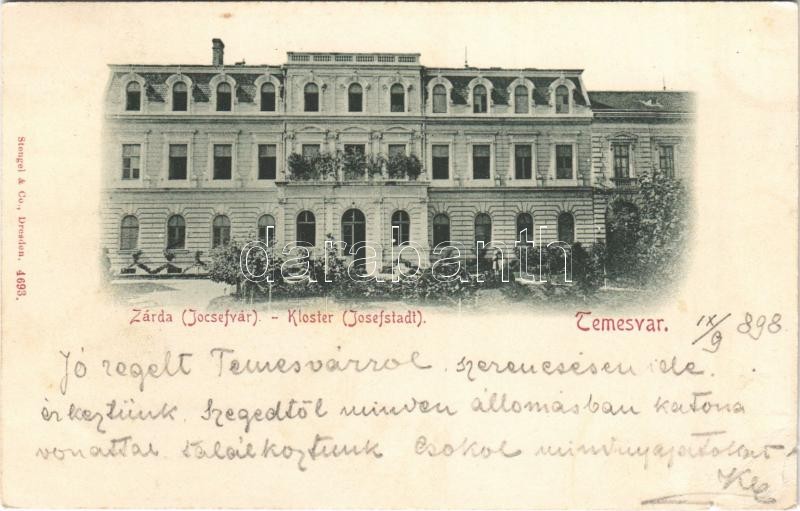 Stengel & Co., Dresden. 4693.
darabanth
Zárda (Jocsefvár). - Kloster (Josefstadt).
Temesvar.
IX/9 898.
Jó regelt Temesvárrol szerencsésen ide
érkeztünk. Szegedtöl minden állomásban katona
vonattal találkoztunk Csokol mindnyajatokat